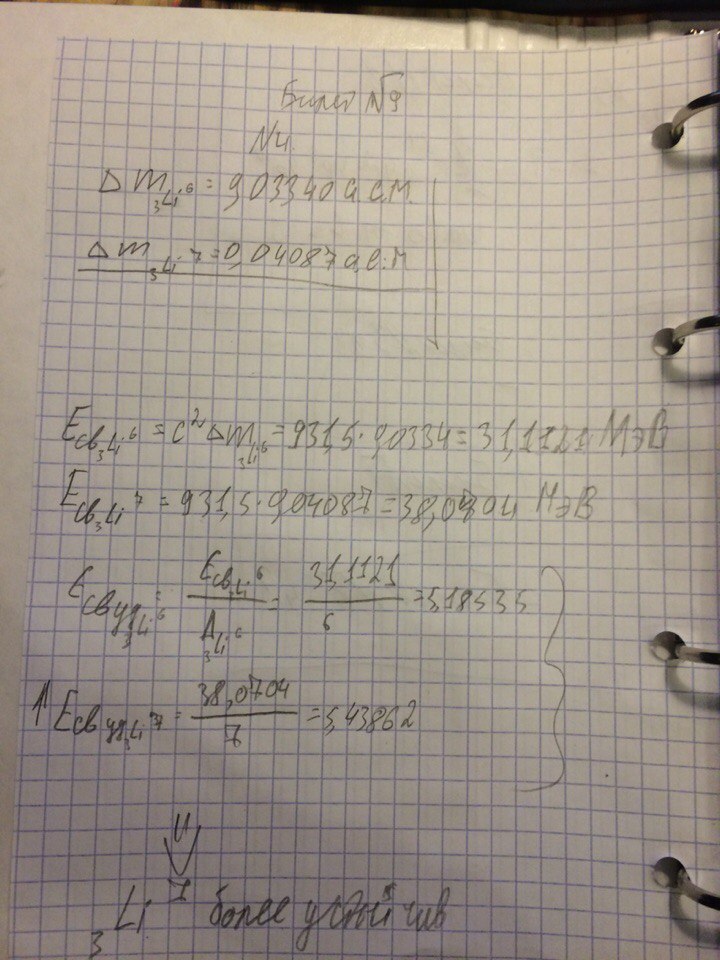 Билет №9
№4.
Δm ₃Li⁶ = 0,03340 а.е.м.
Δm ₃Li⁷ = 0,04087 а.е.м
Eсв ₃Li⁶ = c² Δm ₃Li⁶ = 931,5 · 0,0334 = 31,1121 МэВ
Eсв ₃Li⁷ = 931,5 · 0,04087 = 38,0704 МэВ
Eсв уд ₃Li⁶ = Eсв ₃Li⁶ / A ₃Li⁶ = 31,1121 / 6 = 5,18535
⇑ Eсв уд ₃Li⁷ = 38,0704 / 7 = 5,43862
₃Li⁷ более устойчив